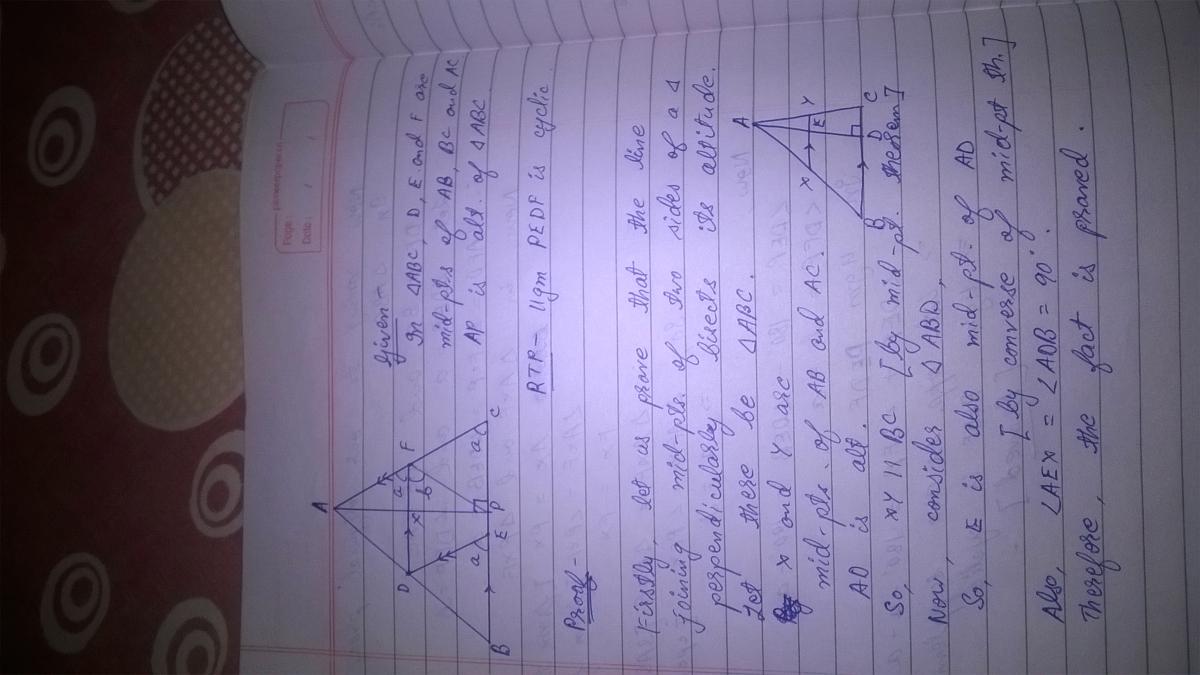 Page:
Date:
Given-
In △ABC, D, E and F are
mid-pts of AB, BC and AC
AP is alt. of △ABC
A
D
F
a
x
b
a
a
B
E
P
C
RTP- ||gm PEDF is cyclic.
Proof-
Firstly, let us prove that the line
joining mid-pts. of two sides of a △
perpendicularly bisects its altitude.
Let there be △ABC.
X and Y are
mid-pts. of AB and AC.
AD is alt.
A
X
Y
E
B
D
C
So, XY || BC [by mid-pt. theorem]
Now, consider △ABD,
So, E is also mid-pt. of AD
[by converse of mid-pt th.]
Also, ∠AEX = ∠ADB = 90°.
Therefore, the fact is proved.